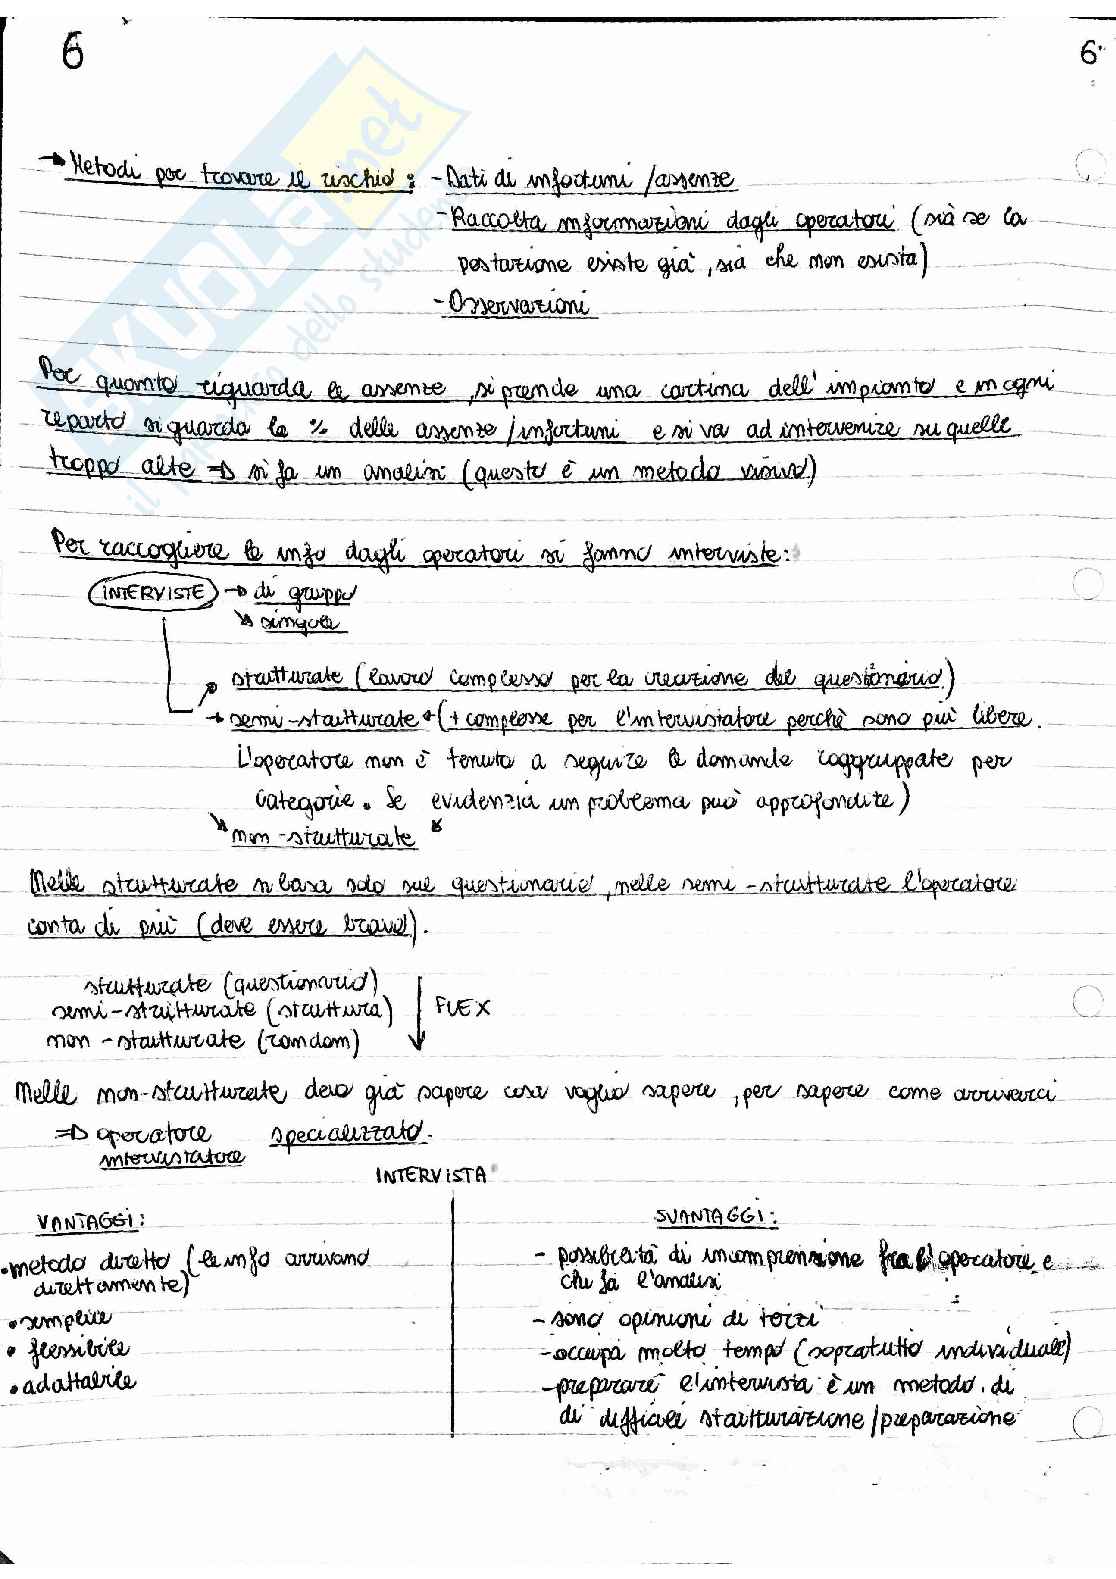 6
6
→ Metodi per trovare il rischio: - Dati di infortuni /assenze
- Raccolta informazioni dagli operatori (sia se la
postazione esiste già, sia che non esista)
- Osservazioni
Per quanto riguarda le assenze, si prende una cartina dell'impianto e in ogni
reparto si guarda la % delle assenze/infortuni e si va ad intervenire su quelle
troppo alte ⇒ si fa un analisi (questo è un metodo visivo)
Per raccogliere le info dagli operatori si fanno interviste:
INTERVISTE → di gruppo
↘ singole
strutturate (lavoro complesso per la creazione del questionario)
→ semi-strutturate (+ complesse per l'intervistatore perchè sono più libere.
L'operatore non è tenuto a seguire le domande raggruppate per
categorie. Se evidenzia un problema può approfondite)
↘ non-strutturate
Nelle strutturate si basa solo sul questionario, nelle semi-strutturate l'operatore
conta di più (deve essere bravo).
strutturate (questionario)
semi-strutturate (struttura) ↓ FLEX
non-strutturate (random)
Nelle non-strutturate devo già sapere cosa voglio sapere, per sapere come arrivarci
⇒ operatore specializzato.
intervistatore
INTERVISTA
VANTAGGI:
• metodo diretto (le info arrivano
direttamente)
• semplice
• flessibile
• adattabile
SVANTAGGI:
- possibilità di incomprensione fra l'operatore e
chi fa l'analisi
- sono opinioni di terzi
- occupa molto tempo (sopratutto individuale)
- preparare l'intervista è un metodo di
di difficile strutturazione/preparazione
SKUOLA.net
il paradiso dello studente